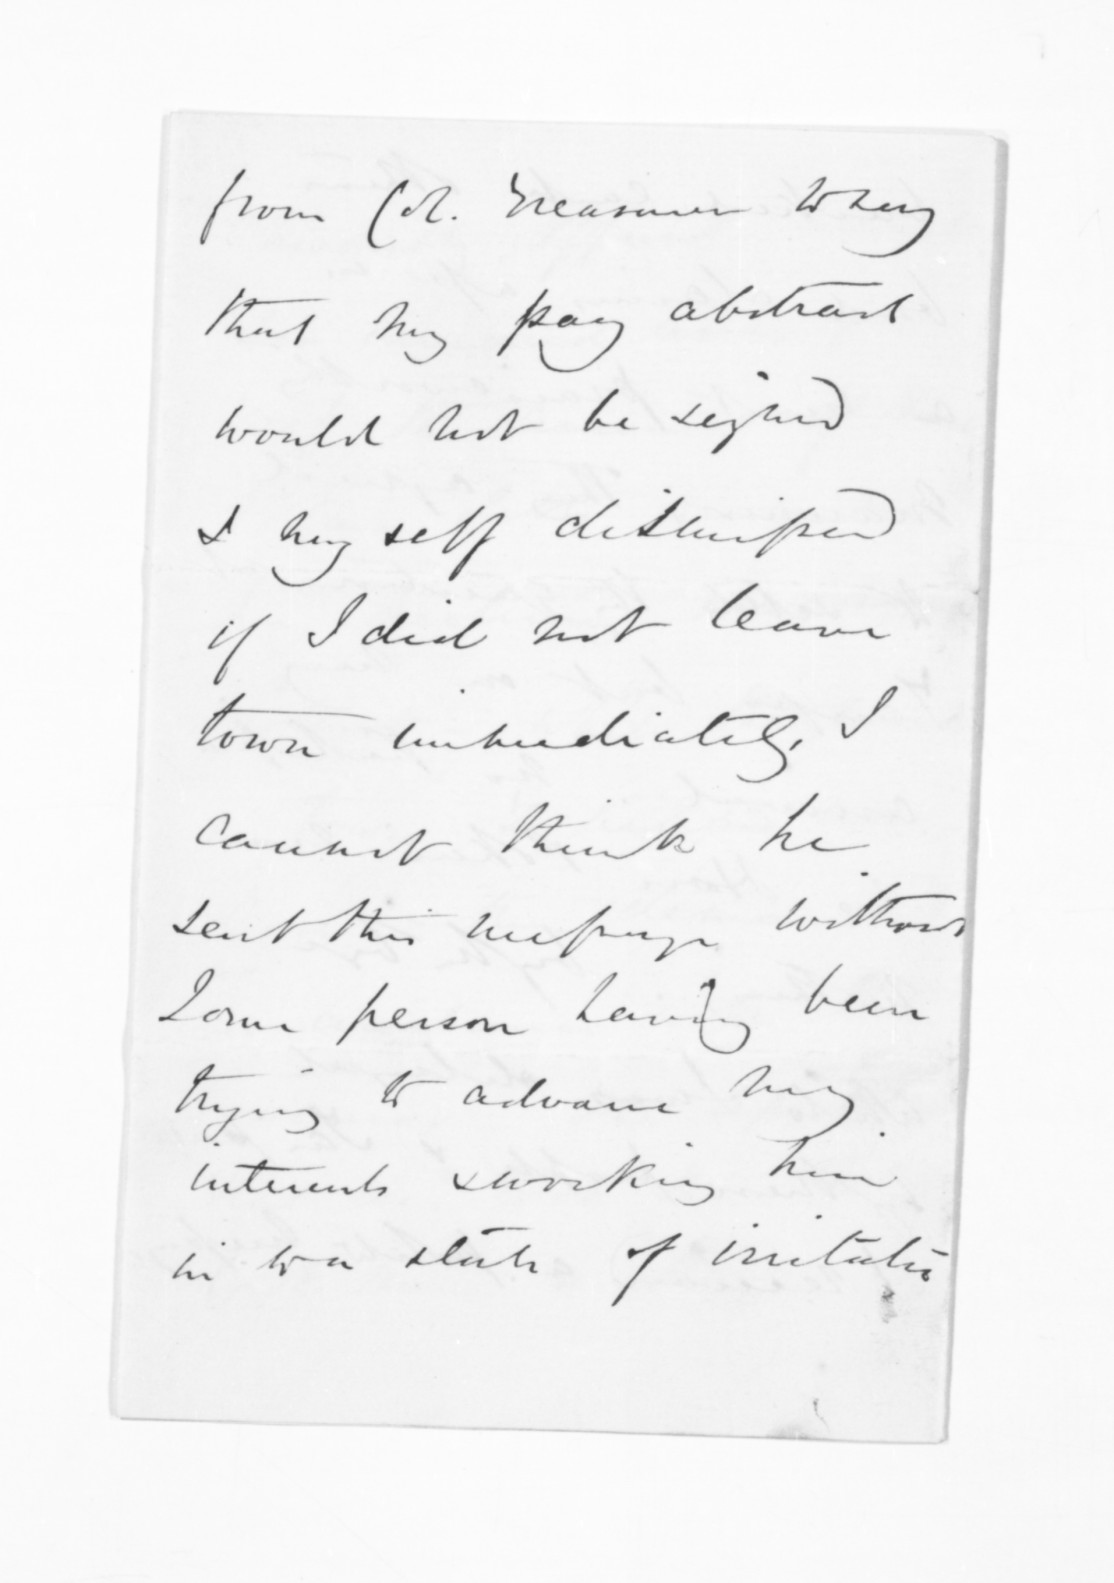 from Col. Treasurer to say
that my pay abstract
would not be signed
& myself dismissed
if I did not leave
town immediately, I
cannot think he
sent this message without
some person having been
trying to advance my
interests & working him
in to a state of irritatio